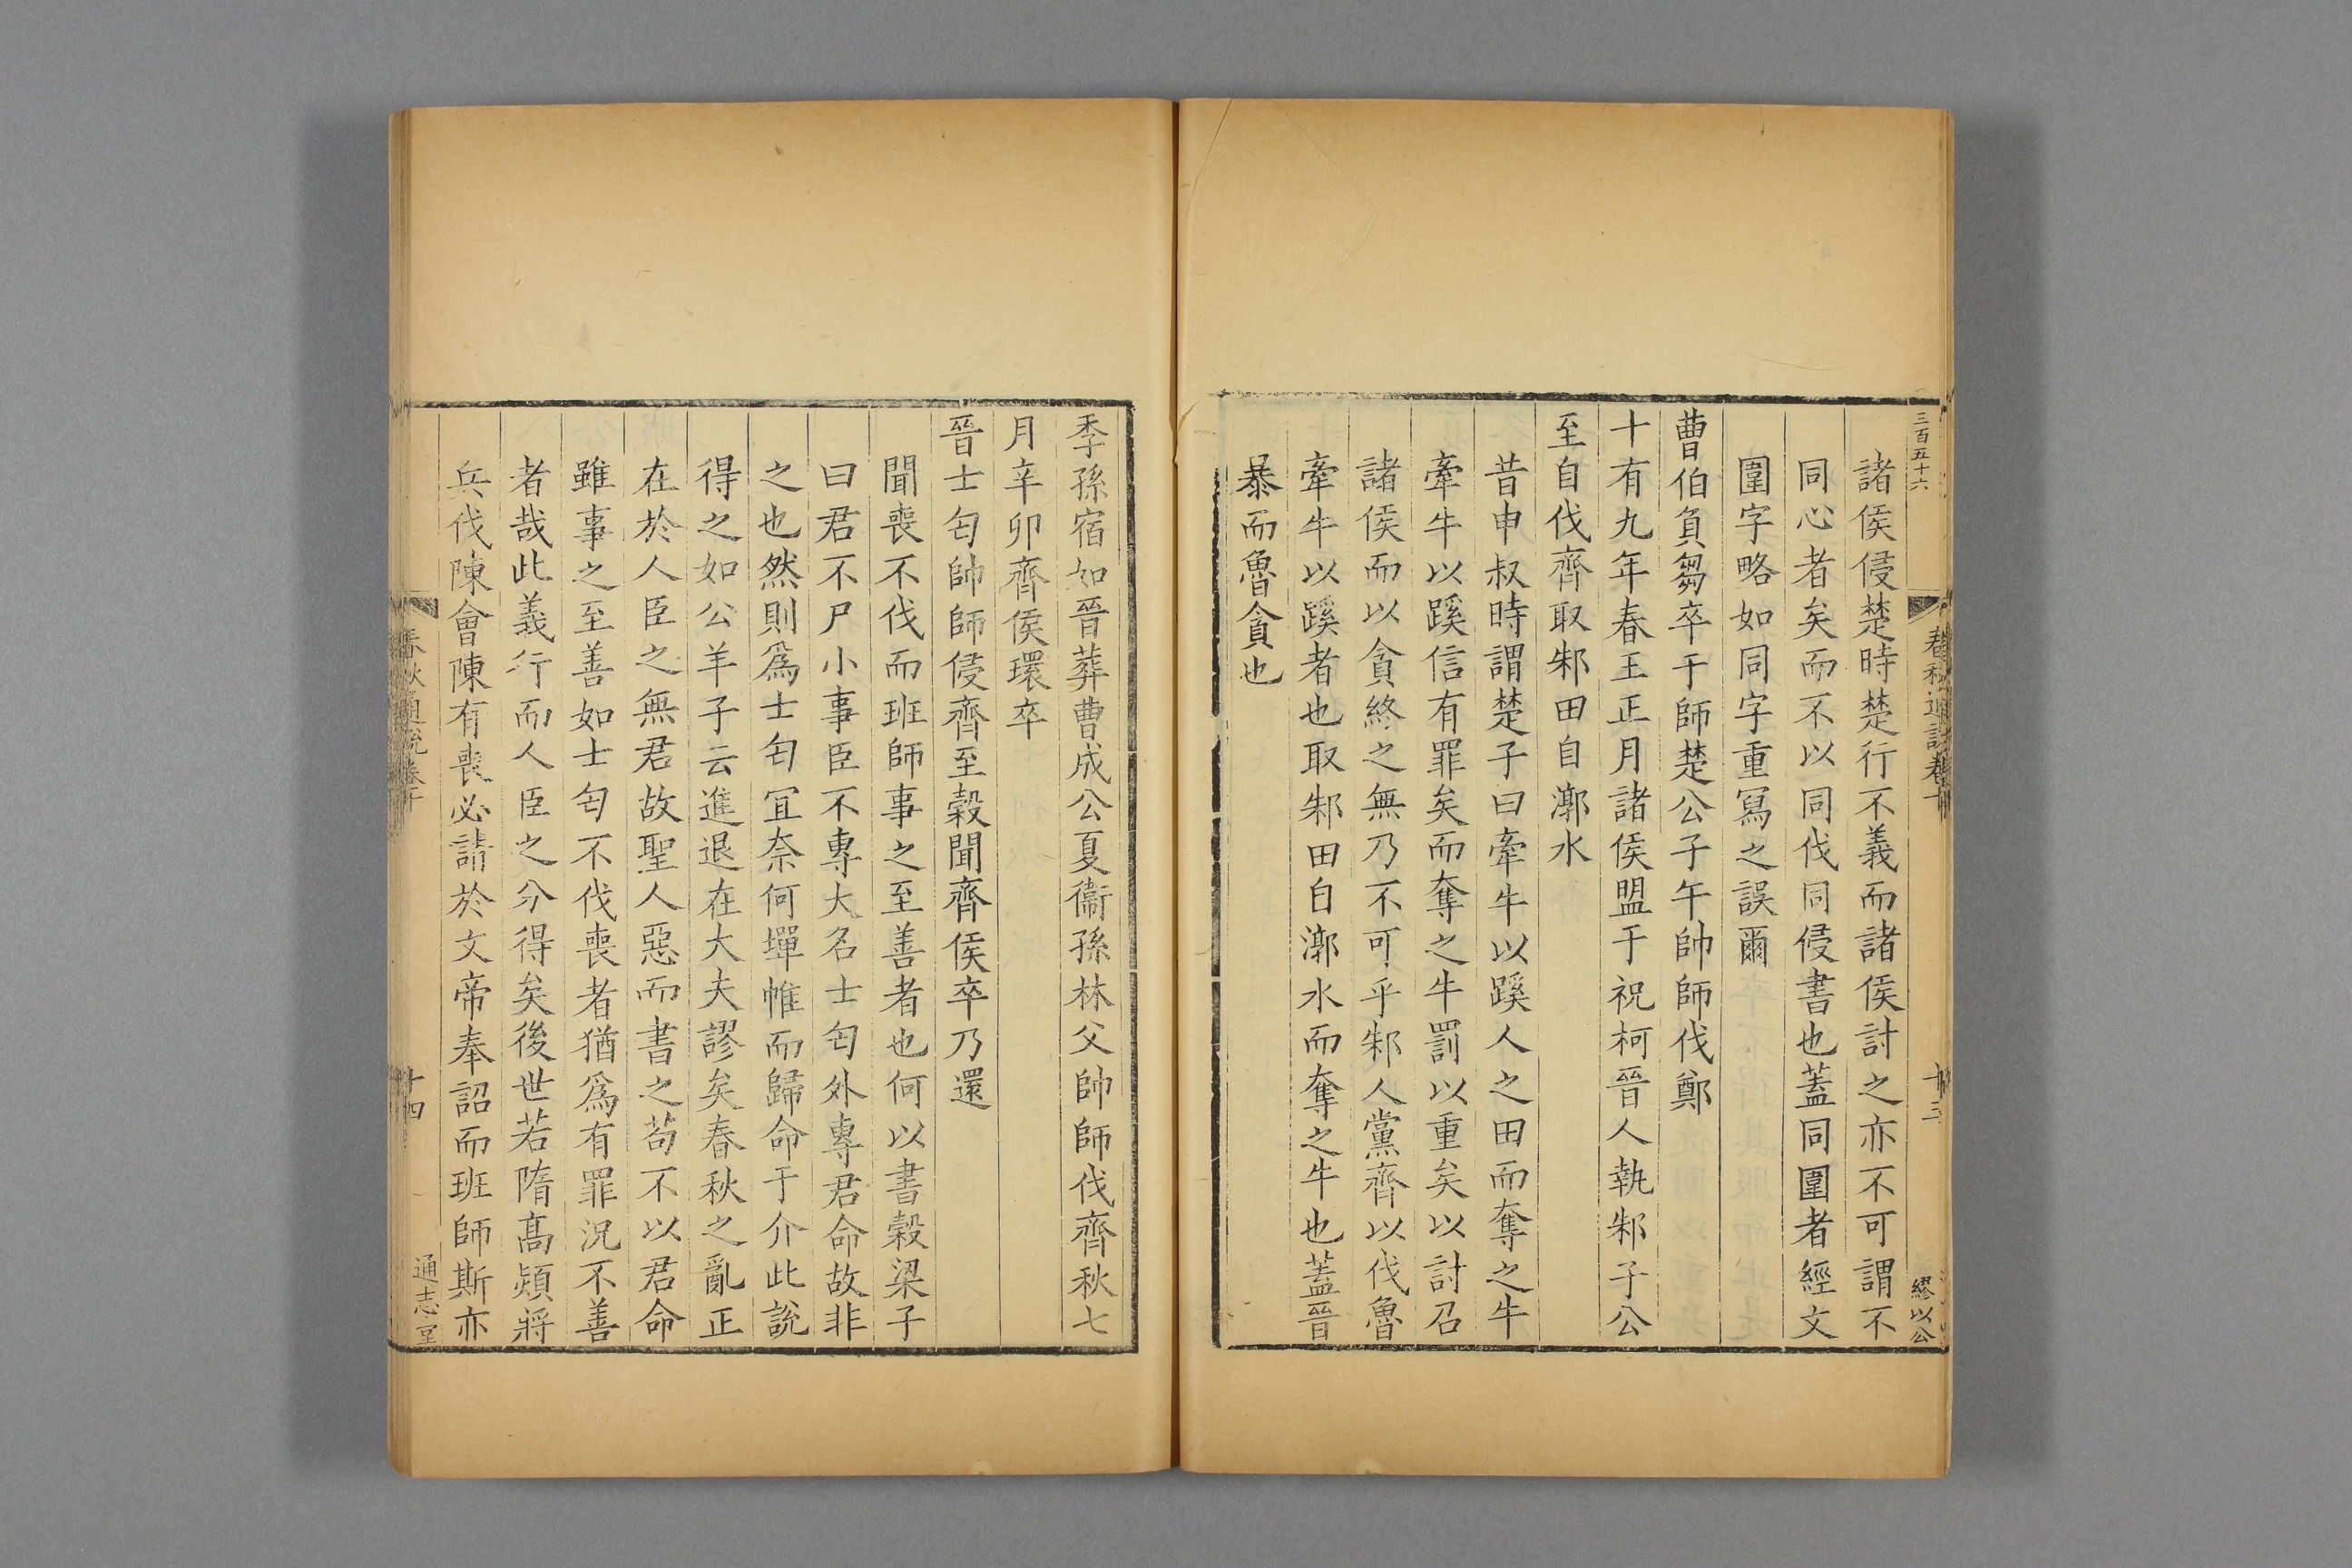 三百五十六
春秋通說卷十
十三
繆以公
諸侯侵楚時楚行不義而諸侯討之亦不可謂不
同心者矣而不以同伐同侵書也蓋同圍者經文
圍字略如同字重寫之誤爾
曹伯負芻卒于師楚公子午帥師伐鄭
十有九年春王正月諸侯盟于祝柯晉人執邾子公
至自伐齊取邾田自漷水
昔申叔時謂楚子曰牽牛以蹊人之田而奪之牛
牽牛以蹊信有罪矣而奪之牛罰以重矣以討召
諸侯而以貪終之無乃不可乎邾人黨齊以伐魯
牽牛以蹊者也取邾田自漷水而奪之牛也蓋晉
暴而魯貪也
季孫宿如晉葬曹成公夏衞孫林父帥師伐齊秋七
月辛卯齊侯環卒
晉士匄帥師侵齊至榖聞齊侯卒乃還
聞喪不伐而班師事之至善者也何以書榖梁子
曰君不尸小事臣不專大名士匄外專君命故非
之也然則爲士匄宜奈何墠帷而歸命于介此說
得之如公羊子云進退在大夫謬矣春秋之亂正
在於人臣之無君故聖人惡而書之茍不以君命
雖事之至善如士匄不伐喪者猶爲有罪況不善
者哉此義行而人臣之分得矣後世若隋高熲將
兵伐陳會陳有喪必請於文帝奉詔而班師斯亦
春秋通說卷十
十四
通志堂